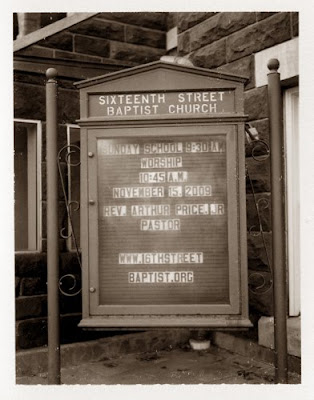 SIXTEENTH STREET
BAPTIST CHURCH
SUNDAY SCHOOL 9:30A.M.
WORSHIP
10:45 A.M.
NOVEMBER 15, 2009
REV. ARTHUR PRICE, JR
PASTOR
WWW.16THSTREET
BAPTIST.ORG